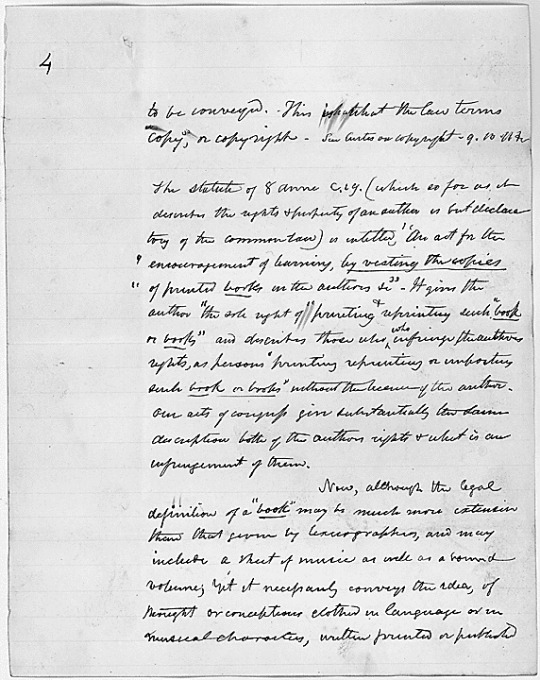 4
to be conveyed. This is what the law terms
copy, or copyright - See Curtis on copyright - 9. 10. 11 &c
The statute of 8 Anne c. 19. (which so far as it
describes the rights & property of an author is but declara
tory of the common law) is entitled, "An act for the
" encouragement of learning, by vesting the copies
" of printed books in the authors &c" - It gives the
author "the sole right of printing & reprinting such "book
or books" and describes those who infringe the authors
rights, as persons "printing reprinting or importing
such book or books" without the license of the author.
Our acts of congress give substantially the same
description both of the authors rights & what is an
infringement of them.
Now, although the legal
definition of a "book" may be much more extensive
than that given by lexicographers, and may
include a sheet of music as well as a bound
volume; yet it necessarily conveys the idea, of
thought or conceptions clothed in language or in
musical characters, written printed or published